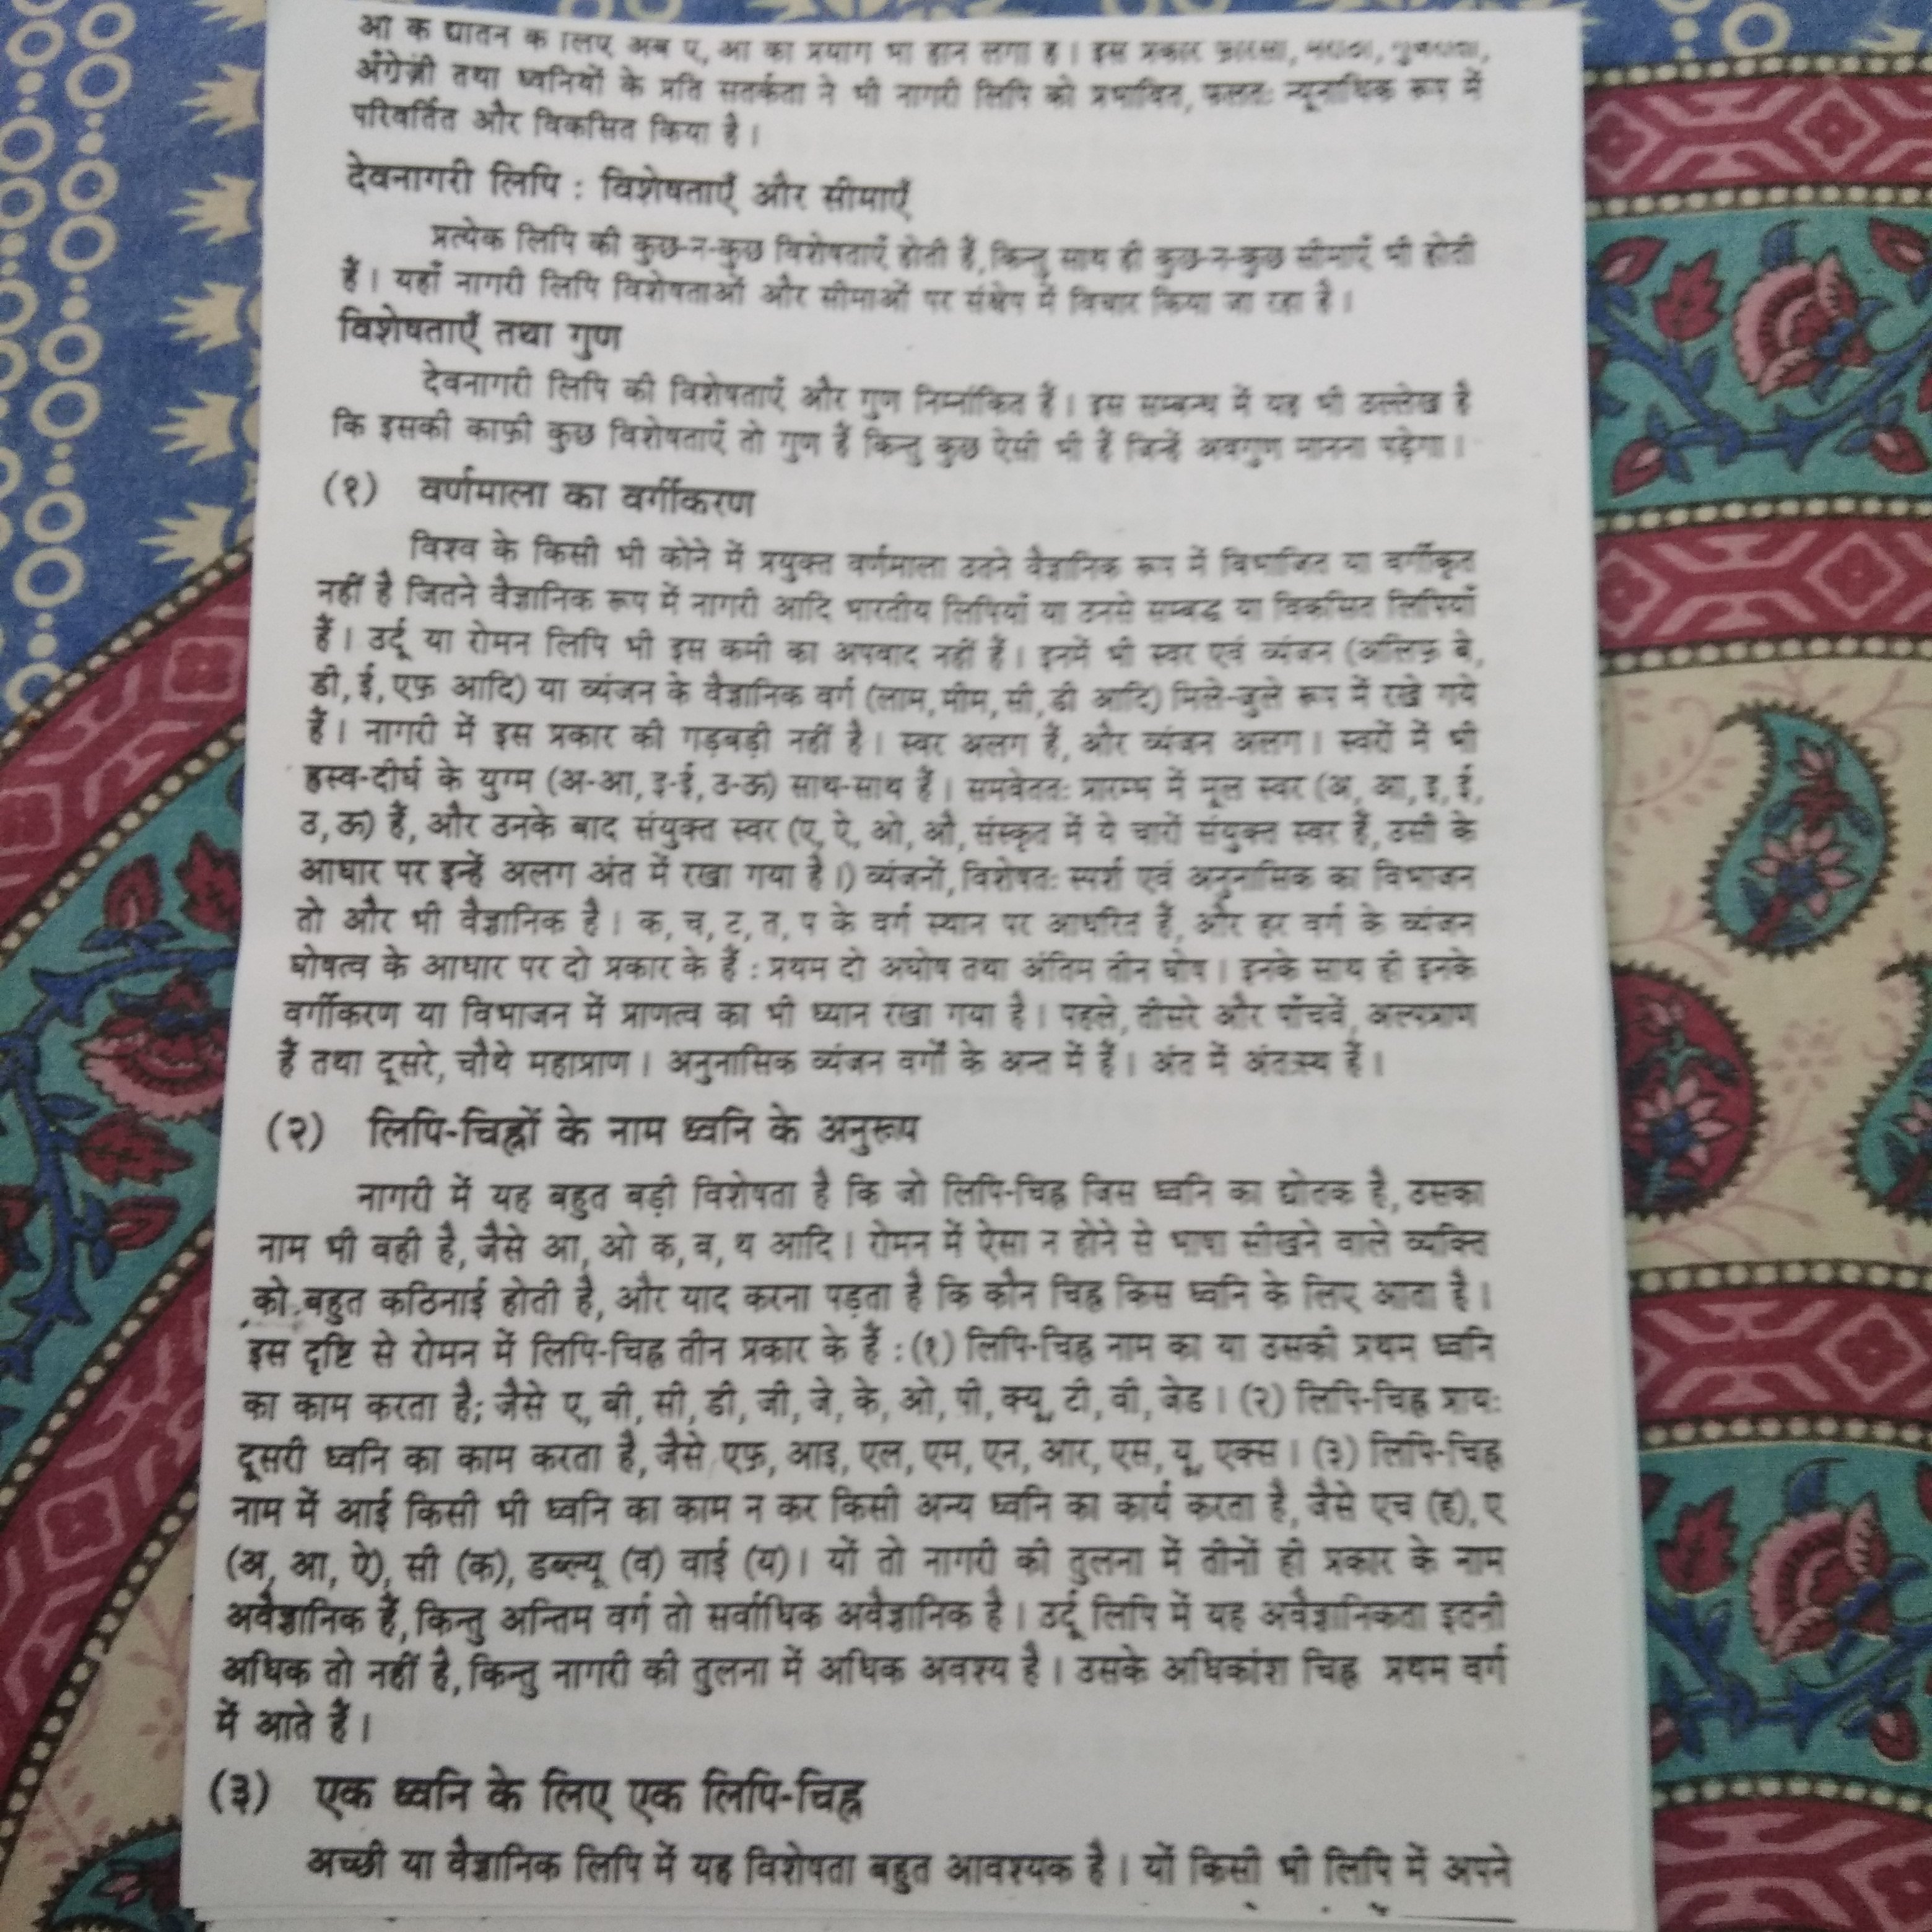 ओ के द्योतन के लिए अब ए, ओ का प्रयोग भी होने लगा है। इस प्रकार फ़ारसी, मराठी, गुजराती,
अँग्रेज़ी तथा ध्वनियों के प्रति सतर्कता ने भी नागरी लिपि को प्रभावित, फलतः न्यूनाधिक रूप में
परिवर्तित और विकसित किया है।
देवनागरी लिपि : विशेषताएँ और सीमाएँ
प्रत्येक लिपि की कुछ-न-कुछ विशेषताएँ होती हैं, किन्तु साथ ही कुछ-न-कुछ सीमाएँ भी होती
हैं। यहाँ नागरी लिपि विशेषताओं और सीमाओं पर संक्षेप में विचार किया जा रहा है।
विशेषताएँ तथा गुण
देवनागरी लिपि की विशेषताएँ और गुण निम्नांकित हैं। इस सम्बन्ध में यह भी उल्लेख है
कि इसकी काफ़ी कुछ विशेषताएँ तो गुण हैं किन्तु कुछ ऐसी भी हैं जिन्हें अवगुण मानना पड़ेगा।
(१) वर्णमाला का वर्गीकरण
विश्व के किसी भी कोने में प्रयुक्त वर्णमाला उतने वैज्ञानिक रूप में विभाजित या वर्गीकृत
नहीं है जितने वैज्ञानिक रूप में नागरी आदि भारतीय लिपियाँ या उनसे सम्बद्ध या विकसित लिपियाँ
हैं। उर्दू या रोमन लिपि भी इस कमी का अपवाद नहीं हैं। इनमें भी स्वर एवं व्यंजन (अलिफ़ बे,
डी, ई, एफ़ आदि) या व्यंजन के वैज्ञानिक वर्ग (लाम, मीम, सी, डी आदि) मिले-जुले रूप में रखे गये
हैं। नागरी में इस प्रकार की गड़बड़ी नहीं है। स्वर अलग हैं, और व्यंजन अलग। स्वरों में भी
ह्रस्व-दीर्घ के युग्म (अ-आ, इ-ई, उ-ऊ) साथ-साथ हैं। समवेततः प्रारम्भ में मूल स्वर (अ, आ, इ, ई,
उ, ऊ) हैं, और उनके बाद संयुक्त स्वर (ए, ऐ, ओ, औ, संस्कृत में ये चारों संयुक्त स्वर हैं, उसी के
आधार पर इन्हें अलग अंत में रखा गया है।) व्यंजनों, विशेषतः स्पर्श एवं अनुनासिक का विभाजन
तो और भी वैज्ञानिक है। क, च, ट, त, प के वर्ग स्थान पर आधरित हैं, और हर वर्ग के व्यंजन
घोषत्व के आधार पर दो प्रकार के हैं : प्रथम दो अघोष तथा अंतिम तीन घोष। इनके साथ ही इनके
वर्गीकरण या विभाजन में प्राणत्व का भी ध्यान रखा गया है। पहले, तीसरे और पाँचवें, अल्पप्राण
हैं तथा दूसरे, चौथे महाप्राण। अनुनासिक व्यंजन वर्गों के अन्त में हैं। अंत में अंतःस्थ हैं।
(२) लिपि-चिह्नों के नाम ध्वनि के अनुरूप
नागरी में यह बहुत बड़ी विशेषता है कि जो लिपि-चिह्न जिस ध्वनि का द्योतक है, उसका
नाम भी वही है, जैसे आ, ओ क, ब, थ आदि। रोमन में ऐसा न होने से भाषा सीखने वाले व्यक्ति
को बहुत कठिनाई होती है, और याद करना पड़ता है कि कौन चिह्न किस ध्वनि के लिए आता है।
इस दृष्टि से रोमन में लिपि-चिह्न तीन प्रकार के हैं : (१) लिपि-चिह्न नाम का या उसकी प्रथम ध्वनि
का काम करता है; जैसे ए, बी, सी, डी, जी, जे, के, ओ, पी, क्यू, टी, वी, जेड। (२) लिपि-चिह्न प्रायः
दूसरी ध्वनि का काम करता है, जैसे एफ़, आइ, एल, एम, एन, आर, एस, यू, एक्स। (३) लिपि-चिह्न
नाम में आई किसी भी ध्वनि का काम न कर किसी अन्य ध्वनि का कार्य करता है, जैसे एच (ह), ए
(अ, आ, ऐ), सी (क), डब्ल्यू (व) वाई (य)। यों तो नागरी की तुलना में तीनों ही प्रकार के नाम
अवैज्ञानिक हैं, किन्तु अन्तिम वर्ग तो सर्वाधिक अवैज्ञानिक है। उर्दू लिपि में यह अवैज्ञानिकता इतनी
अधिक तो नहीं है, किन्तु नागरी की तुलना में अधिक अवश्य है। उसके अधिकांश चिह्न प्रथम वर्ग
में आते हैं।
(३) एक ध्वनि के लिए एक लिपि-चिह्न
अच्छी या वैज्ञानिक लिपि में यह विशेषता बहुत आवश्यक है। यों किसी भी लिपि में अपने